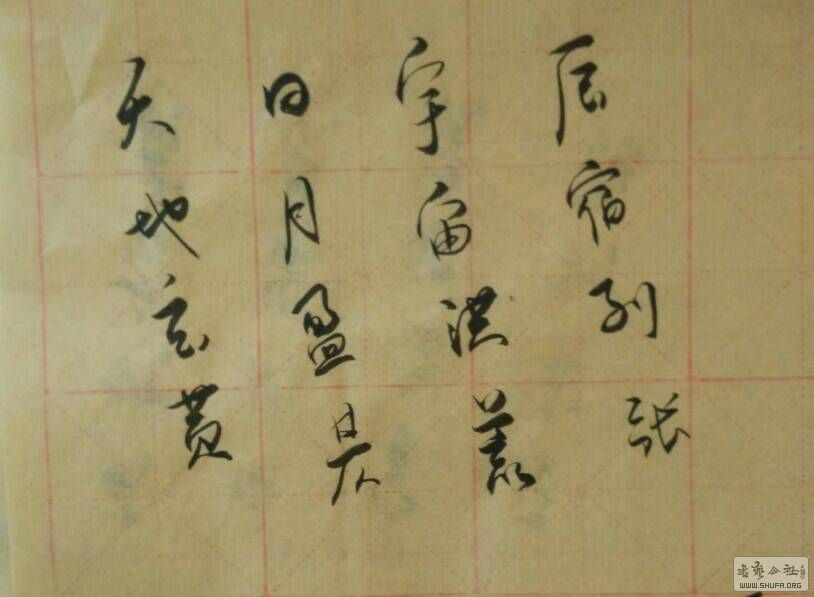 天地玄黄
日月盈昃
宇宙洪荒
辰宿列张
書藝公社
WWW.SHUFA.ORG